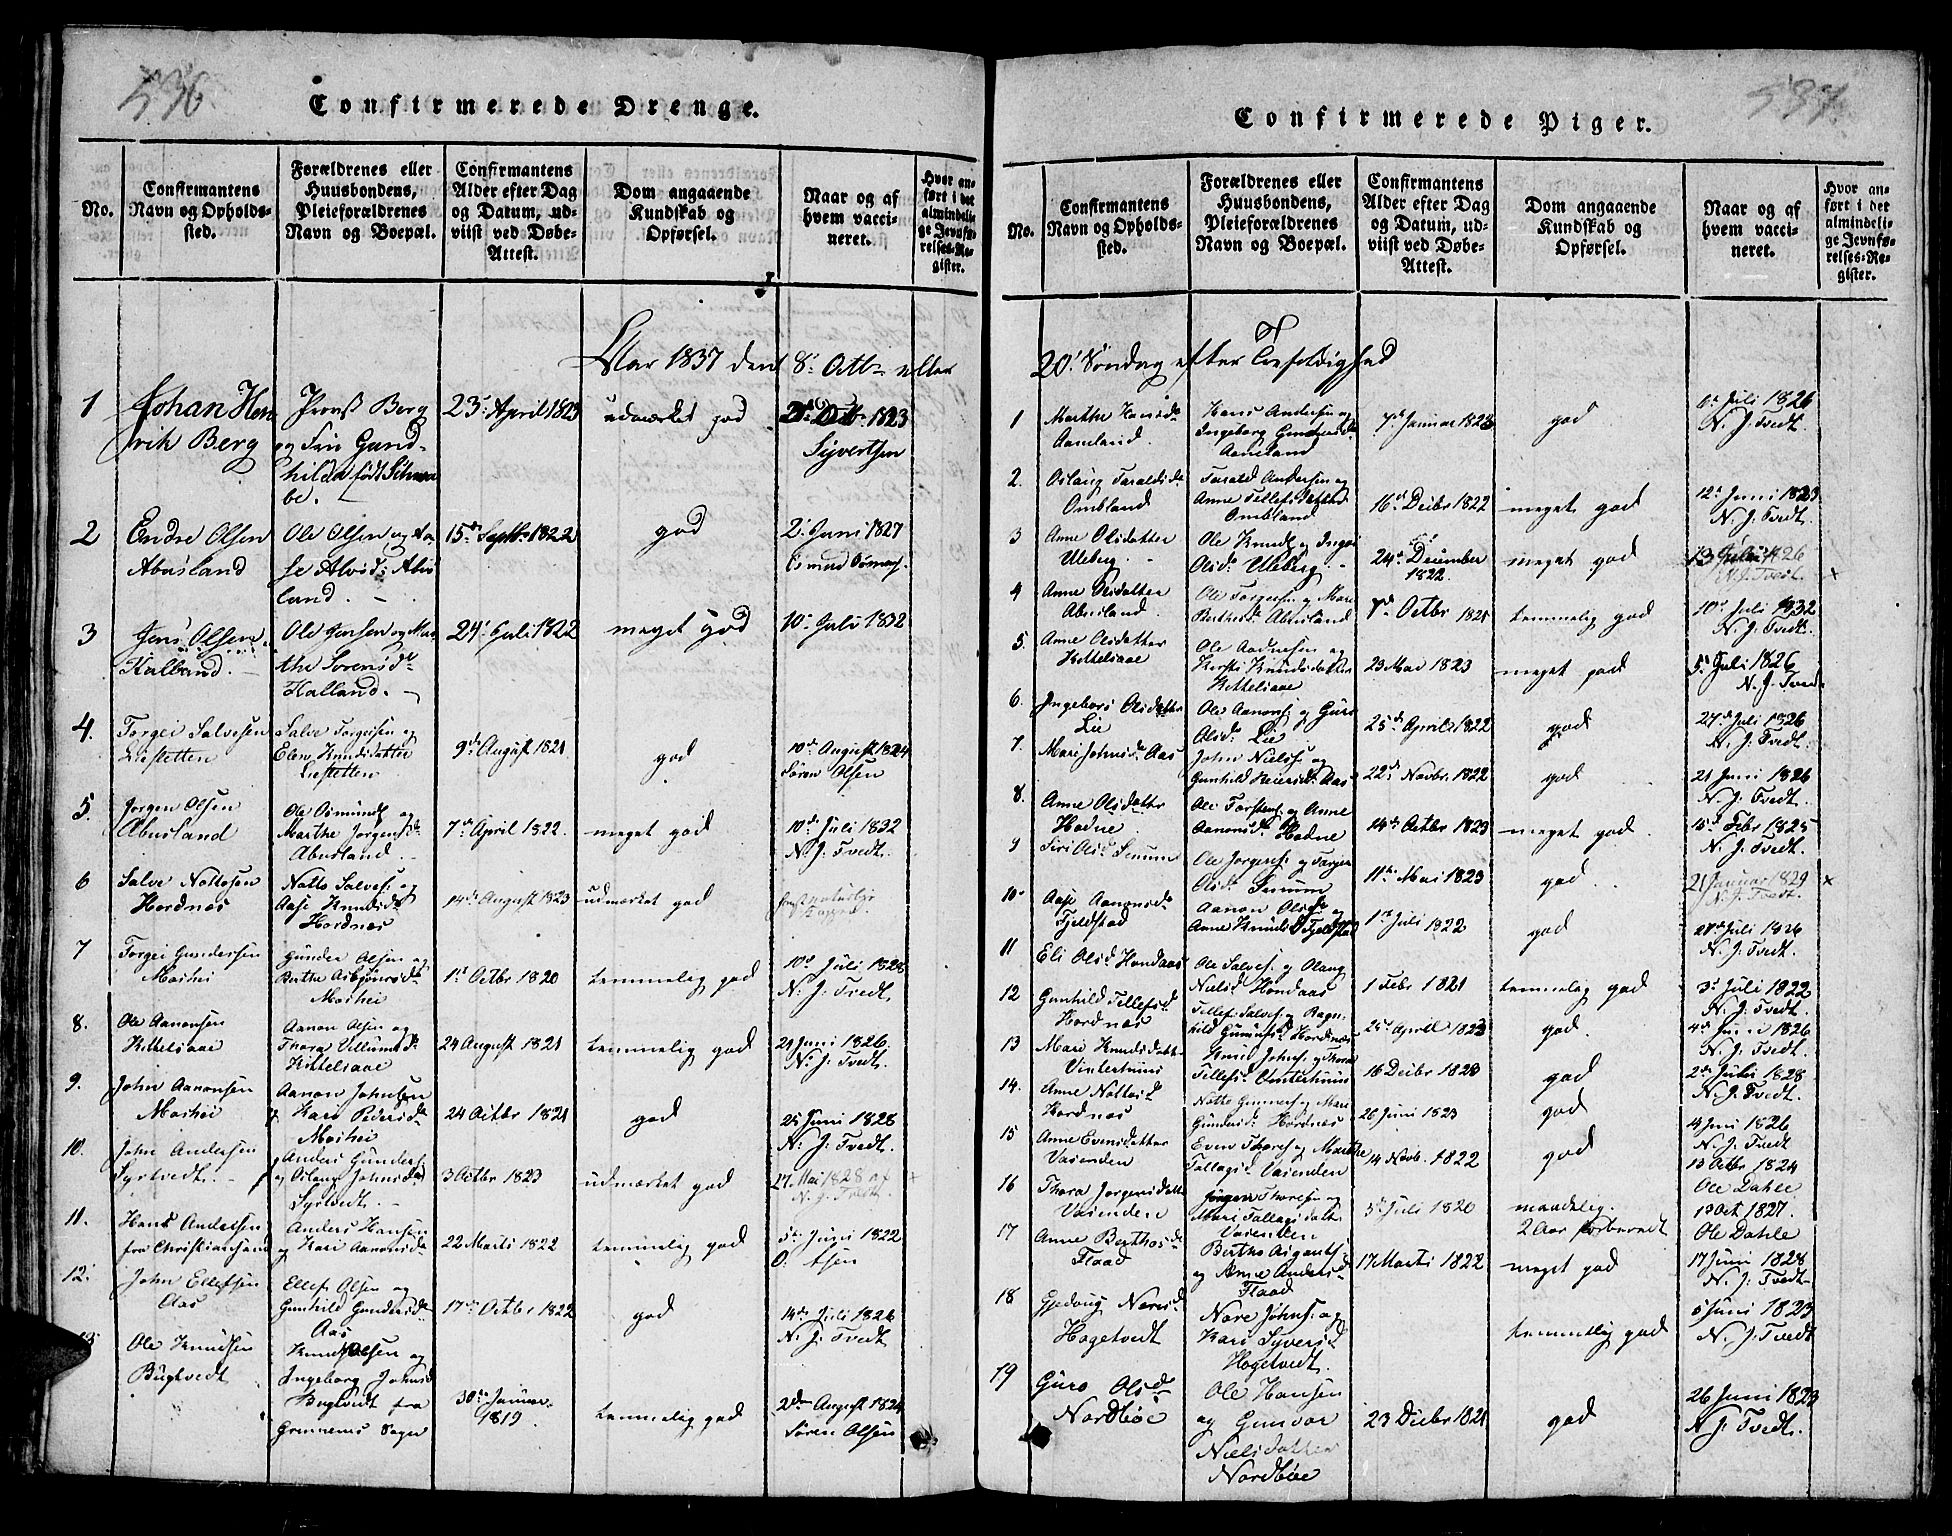 536.
Confirmerede Drenge.
No.
Confirmantens Navn og Opholds-sted.
Forældrenes eller Huusbondens, Pleieforældrenes Navn og Boepæl.
Confirmantens Alder efter Dag og Datum, ud-viist ved Døbe-Attest.
Dom angaaende Kundskab og Opførsel.
Naar og af hvem vacci-neret.
Hvor an-ført i det almindeli-ge Jevnfø-relses-Re-gister.
Aar 1837 den 8' Octbr eller
1 Johan Hen-rik Berg
Provst Berg og Fru Gund-hilda født Schwa-be.
23' April 1823
udmærket god
Octbr 1823 Syvertsen
2 Endre Olsen Abusland
Ole Olsen og Aa-se Alvsd: Abus-land.
15de Septbr 1822
god
2' Juni 1827
3 Jens Olsen Kalland.
Ole Jensen og Mar-the Sørensd: Kalland.
24' Juli 1822
meget god
10' Juli 1832
4. Torgei Salvesen Liestetten
Salve Torgeisen og Elen Knudsdatter Liestetten
9de August 1821
god
10de August 1824 Søren Olsen
5. Jørgen Olsen Abusland
Ole Osmunds: og Marthe Jørgensd: Abusland.
7de April 1822.
meget god
10de Juli 1832 N. J. Tvedt.
6 Salve Nottosen Hordnæs
Notto Salves: og Aase Knudsd: Hordnæs
14de August 1823
udmærket god
naturlige Kopper
7 Torgei Gundersen Moshei
Gunder Olsen og Berthe Asbjørnsd: Moshei
1st Octbr 1820
temmelig god
10d Juli 1828 N. J. Tvedt.
8. Ole Aanonsen Kittelsaae
Aanon Olsen og Thora Villumsd: Kittelsaae
24 August 1821
temmelig god
21 Juni 1826. N. J. Tvedt.
9. John Aanonsen Moshei
Aanon Johnsen og Kari Pedersd: Moshei
24 Octbr 1821
god
25 Juni 1828 N. J. Tvedt.
10. John Andersen Syrtvedt.
Anders Gunders: og Aslaug Johnsd: Syrtvedt.
3 Octbr 1823
udmærket god
27. Mai 1828 af N. J. Tvedt. +
11. Hans Andersen fra Christiansand
Anders Hansen og Kari Aanonsd:
22 Marts 1822
temmelig god
5te Juni 1822 O.
12. John Ellefsen Aas
Ellef Olsen og Gunhild Gundersd: Aas
17de Octbr 1822
god
14de Juli 1826 N. J. Tvedt.
13. Ole Knudsen Bugtvedt
Knud Olsen og Ingeborg Johnsd: Bugtvedt fra Grennenes Sogn
30te Januar 1819.
temmelig god
2den August 1824 Søren Olsen
537.
Confirmerede Piger.
No.
Confirmantens Navn og Opholds-sted.
Forældrenes eller Huusbondens, Pleieforældrenes Navn og Boepæl.
Confirmantens Alder efter Dag og Datum, ud-viist ved Døbe-Attest.
Dom angaaende Kundskab og Opførsel.
Naar og af hvem vacci-neret.
Hvor an-ført i det almindeli-ge Jevnfø-relses-Re-gister.
20' Søndag efter Trefoldighed
1 Marthe Hansd: Aamland.
Hans Andersen og Ingeborg Aamland
7de Januar 1823
god
6te Juli 1826 N. J. Tvedt.
2. Oslaug Taraldsd: Ombland
Tarald Andersen og Anne Tellefsdatter Ombland
16de Decbr 1822
meget god
12te Juni 1823 N. J. Tvedt.
3 Anne Olsdatter Uleberg.
Ole Knuds: og Inge Olsd: Uleberg.
24de December 1822.
meget god
13 Juli 1826 N. J. Tvedt. +
4 Anne Olsdatter Abusland.
Ole Torgers: og Mari Berthesd: Abusland
7de Octbr 1821
temmelig god
10de Juli 1832 N. J. Tvedt.
5. Anne Olsdatter Kittelsaae
Ole Aadnesen og Kersti Knudsdatter Kittelsaae
23 Mai 1823
meget god
5te Juli 1826 N. J. Tvedt.
6. Ingebors Olsdatter Lie
Ole Aanons: og Guro Olsd: Lie
25de April 1822
god
27de Juli 1826 N. J. Tvedt.
7. Mari Johnsd: Aas
John Niels: og Gunhild Aas
22de Novbr. 1822
god
21 Juni 1826 N. J. Tvedt.
8. Anne Olsdatter Hodne.
Ole Torstens: og Anne Aanonsd: Hodne
14de Octbr 1823
meget god.
15d Febr 1825 N. J. Tvedt.
9 Siri Olsd: Senum
Ole Jørgens: og Torger Olsd: Senum
11te Mai 1823
god
21 Januar 1829 N. J. Tvedt. +
10. Aase Aanonsd: Fjeldstad
Aanon Olsen og Anne Knudsd: Fjeldstad
1ste Juli 1822
god
21de Juli 1826 N. J. Tvedt.
11 Eli Olsd: Hondaas
Ole Salves: og Olaug Nielsd: Hondaas
1 Febr 1821
temmelig god
3d Juli 1822 N. J. Tvedt.
12 Gunhild Tellefsd: Hordnæs
Tellef Salves: og Ragn-hild Gundersd: Hordnæs
25de April 1823
god.
4de Juni 1826 N. J. Tvedt.
13 Mari Knudsdatt: Vinterhuus
Knud Johns: og Thora Tellefsd: Vinterhuus
16 Decbr 1823
god
2de Juli 1828 N. J. Tvedt.
14. Anne Nottosd: Hordnæs
Notto Gunners: og Mari Gundersd: Hordnæs
26 Juni 1823
god
4 Juni 1826 N. J. Tvedt
15 Anne Evensdatter Vasenden
Even Thores: og Marthe Tallagsd: Vasenden
14 Novb. 1822
god
13 Octbr 1824 Ole Dahle
16 Thora Jørgensdatt: Vasenden
Jørgen Thoresen og Mari Tallagsdatt: Vasenden
5te Juli 1820
maadelig. 2 Aar forberedt
19 Oct. 1827. Ole Dahle
17 Anne Berthosd: Flaad
Bertho Asgauts: og Anne Andersd: Flaad
17 Marts 1822
meget god
17 Juni 1828 N. J. Tvedt.
18 Gjedaug Noresd: Hagetvedt
Nore Johns: og Kari Syversd: Hagetvedt.
temmelig god
5 Juni 1823 N. J. Tvedt.
19 Guro Olsd: Nordbøe
Ole Hansen og Gunvor Nielsdatter Nordbøe
23 Decbr 1821
god
26 Juni 1823 N. J. Tvedt.